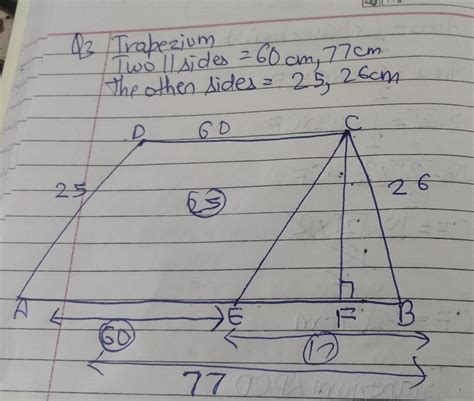 Q3 Trapezium
Two || sides = 60 cm, 77 cm
The other sides = 25, 26 cm
60
D
C
25
26
25
A
E
F
B
60
17
77